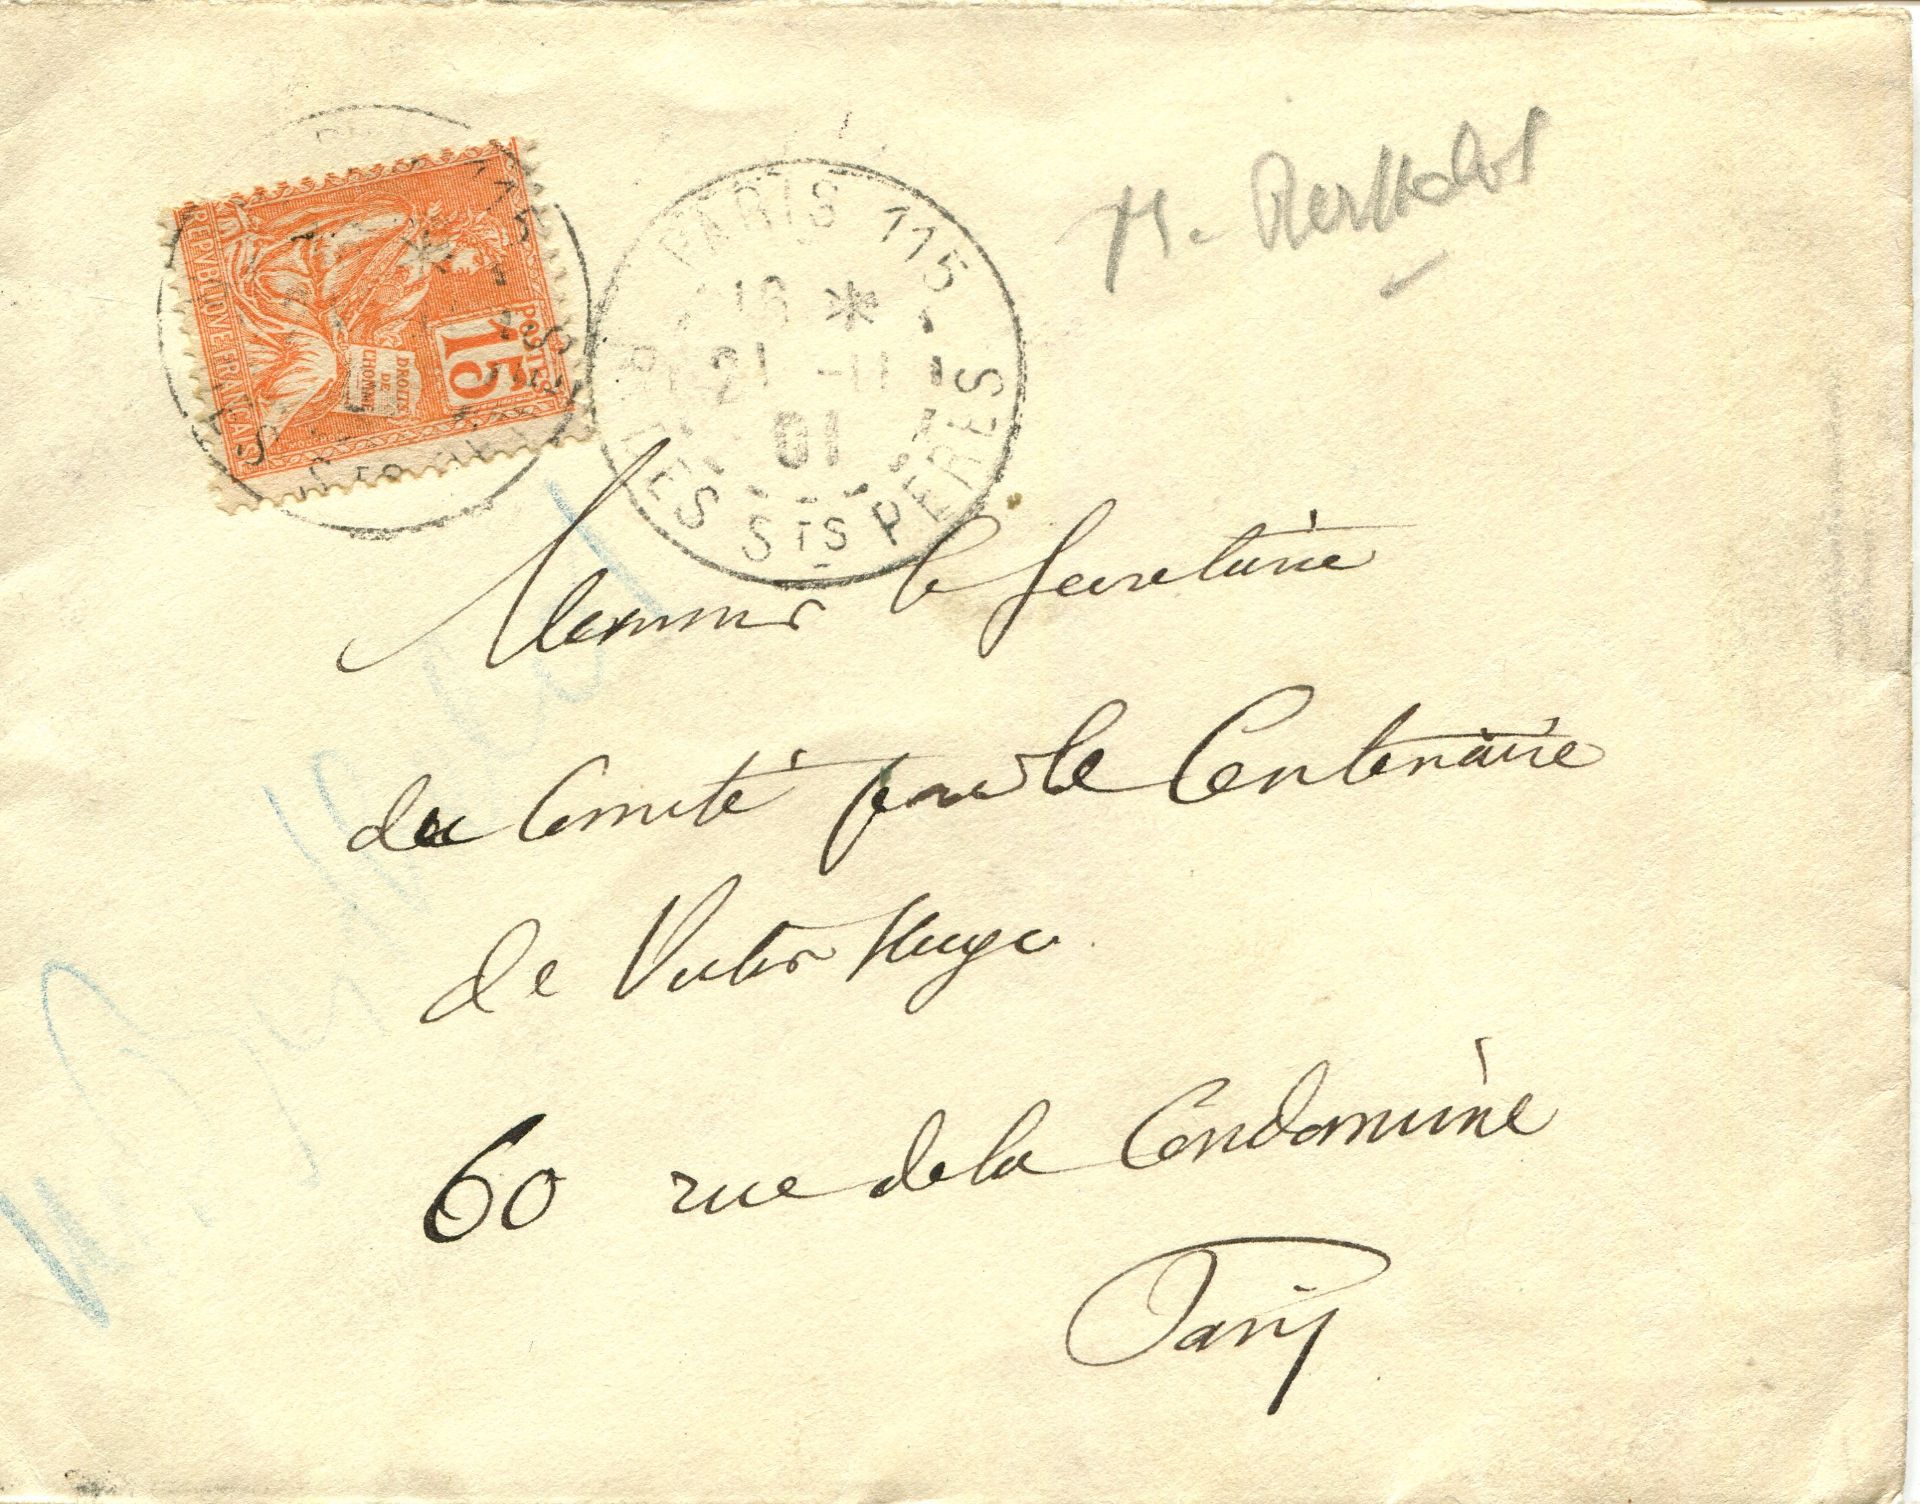 M. Berthelot
REPVBLIQVE FRANCAISE
POSTES
15
DROITS
DE
L'HOMME
PARIS 115
16 *
21 -11
01
RUE DES STS PERES
Monsieur le Secretaire
du Comité pour le Centenaire
de Victor Hugo
60 rue de la Condamine
Paris
M. Berthelot